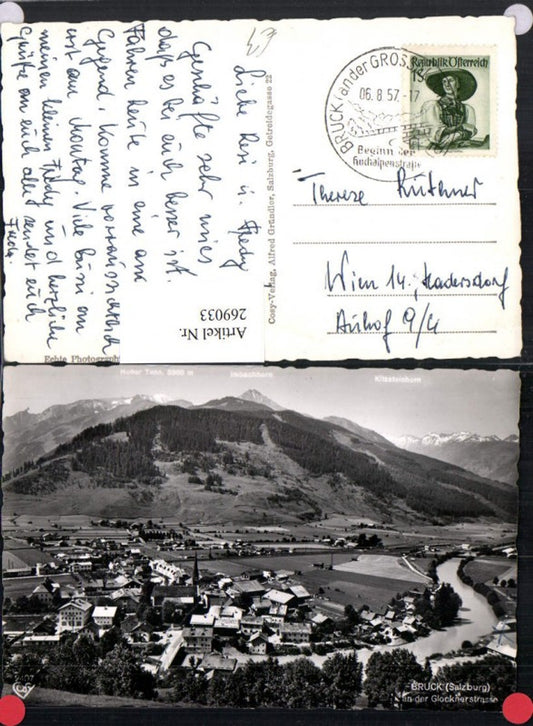 Liebe Resi u. Fredy
Geschäfte sehr mies
dass es bei euch besser ist.
Fahren heute in eine
Gegend, komme voraussichtlich
erst am Montag. Viele Bussi an
meinen kleinen Fredy und herzliche
Grüsse an euch alle sendet euch
Cosy-Verlag, Alfred Gründler, Salzburg, Getreidegasse 22
Echte Photograph
Artikel Nr.
269033
BRUCK an der GROSS
06.8.57-17
Beginn der
Hochalpenstraße
Republik Österreich
1S
Therese
Wien 14., Hadersdorf
Auhof 9/4
Hoher Tenn, 3368 m
Imbachhorn
Kitzsteinhorn
BRUCK (Salzburg)
an der Glocknerstrasse